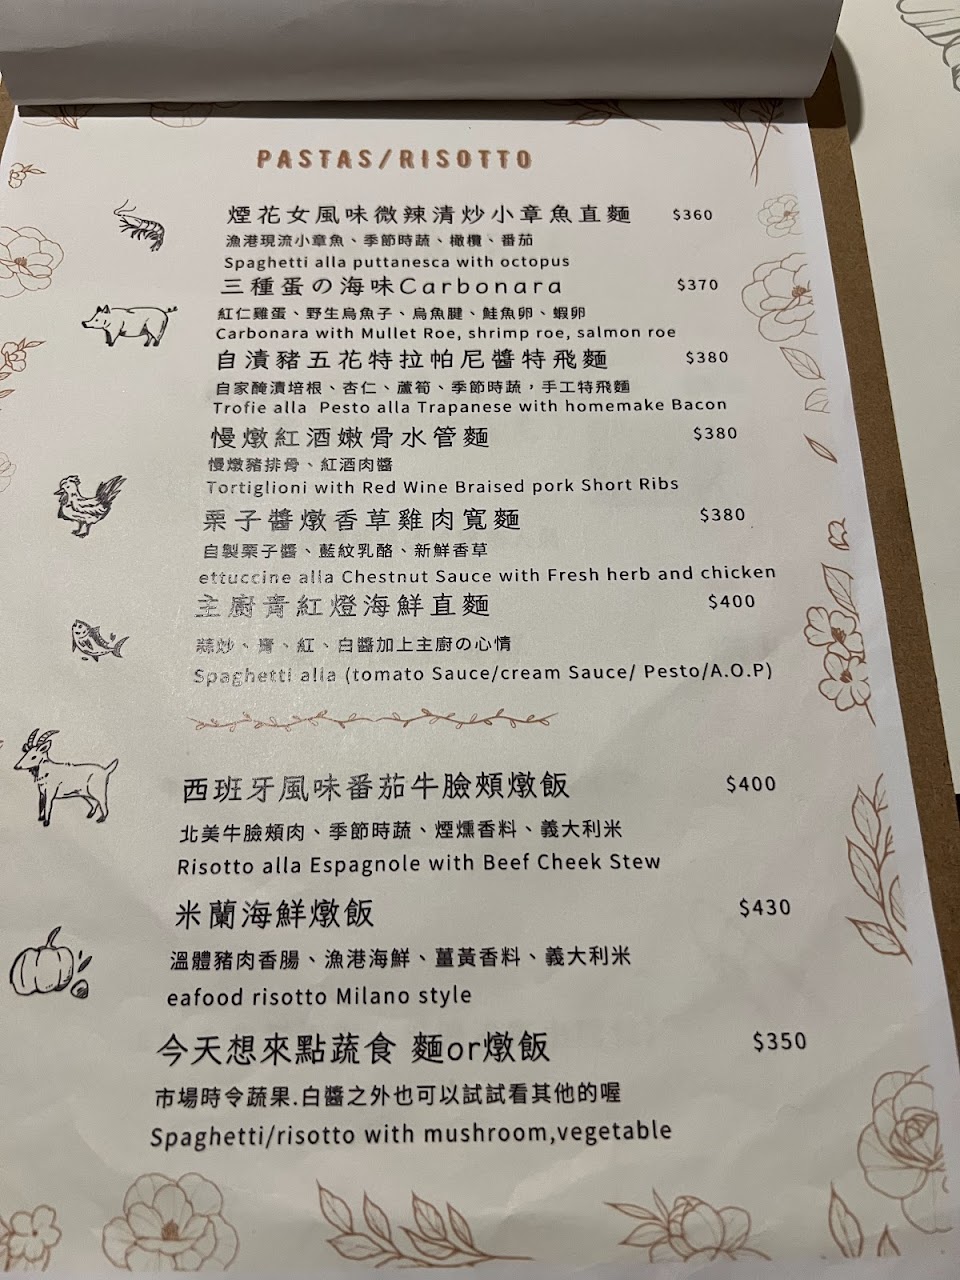 PASTAS/RISOTTO
煙花女風味微辣清炒小章魚直麵 $360
漁港現流小章魚、季節時蔬、橄欖、番茄
Spaghetti alla puttanesca with octopus
三種蛋の海味Carbonara $370
紅仁雞蛋、野生烏魚子、烏魚腱、鮭魚卵、蝦卵
Carbonara with Mullet Roe, shrimp roe, salmon roe
自漬豬五花特拉帕尼醬特飛麵 $380
自家醃漬培根、杏仁、蘆筍、季節時蔬，手工特飛麵
Trofie alla Pesto alla Trapanese with homemake Bacon
慢燉紅酒嫩骨水管麵 $380
慢燉豬排骨、紅酒肉醬
Tortiglioni with Red Wine Braised pork Short Ribs
栗子醬燉香草雞肉寬麵 $380
自製栗子醬、藍紋乳酪、新鮮香草
ettuccine alla Chestnut Sauce with Fresh herb and chicken
主廚青紅燈海鮮直麵 $400
蒜炒、青、紅、白醬加上主廚の心情
Spaghetti alla (tomato Sauce/cream Sauce/ Pesto/A.O.P)
西班牙風味番茄牛臉頰燉飯 $400
北美牛臉頰肉、季節時蔬、煙燻香料、義大利米
Risotto alla Espagnole with Beef Cheek Stew
米蘭海鮮燉飯 $430
溫體豬肉香腸、漁港海鮮、薑黃香料、義大利米
eafood risotto Milano style
今天想來點蔬食 麵or燉飯 $350
市場時令蔬果.白醬之外也可以試試看其他的喔
Spaghetti/risotto with mushroom,vegetable